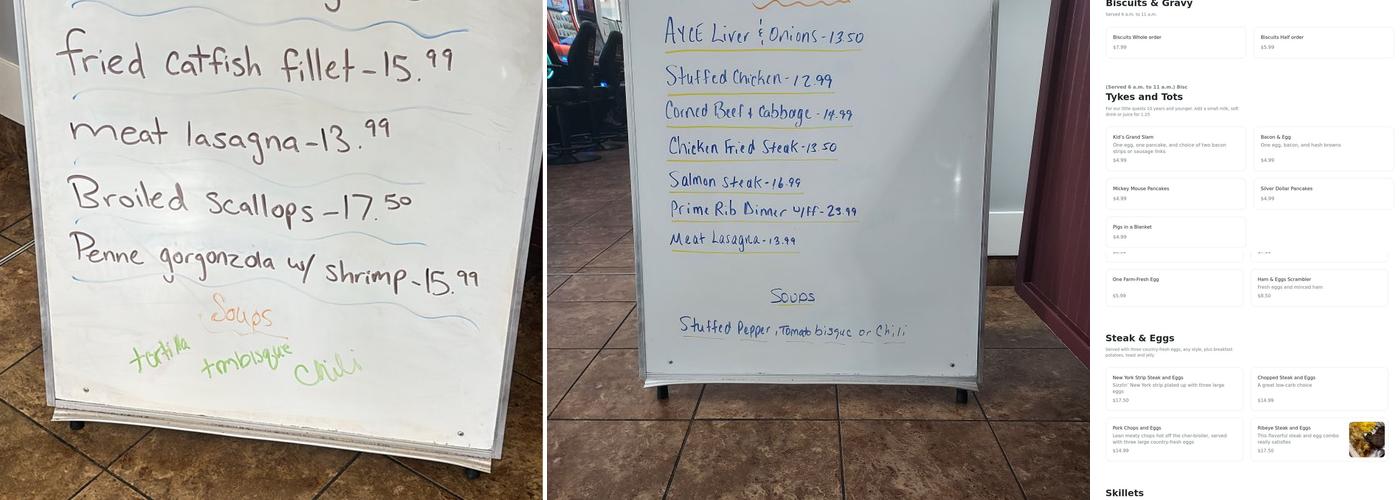 fried catfish fillet-15.99
meat lasagna-13.99
Broiled scallops-17.50
Penne gorgonzola w/ shrimp-15.99
Soups
tortilla tombisque Chili
AYCE Liver & Onions-13.50
Stuffed Chicken-12.99
Corned Beef & Cabbage-14.99
Chicken Fried Steak-13.50
Salmon Steak-16.99
Prime Rib Dinner w/FF-23.99
Meat Lasagna-13.99
Soups
Stuffed Pepper, Tomato bisque or Chili
Biscuits & Gravy
Served 6 a.m. to 11 a.m.
Biscuits Whole order
$7.99
Biscuits Half order
$5.99
(Served 6 a.m. to 11 a.m.) Bisc
Tykes and Tots
For our little guests 10 years and younger. Add a small milk, soft
drink or juice for 1.25
Kid's Grand Slam
One egg, one pancake, and choice of two bacon
strips or sausage links.
$4.99
Bacon & Egg
One egg, bacon, and hash browns
$4.99
Mickey Mouse Pancakes
$4.99
Silver Dollar Pancakes
$4.99
Pigs in a Blanket
$4.99
One Farm-Fresh Egg
$5.99
Ham & Eggs Scrambler
Fresh eggs and minced ham
$8.50
Steak & Eggs
Served with three country-fresh eggs, any style, plus breakfast
potatoes, toast and jelly.
New York Strip Steak and Eggs
Sizzlin' New York strip plated up with three large
eggs
$17.50
Chopped Steak and Eggs
A great low-carb choice
$14.99
Pork Chops and Eggs
Lean meaty chops hot off the char-broiler, served
with three large country-fresh eggs
$14.99
Ribeye Steak and Eggs
This flavorful steak and egg combo
really satisfies
$17.50
Skillets